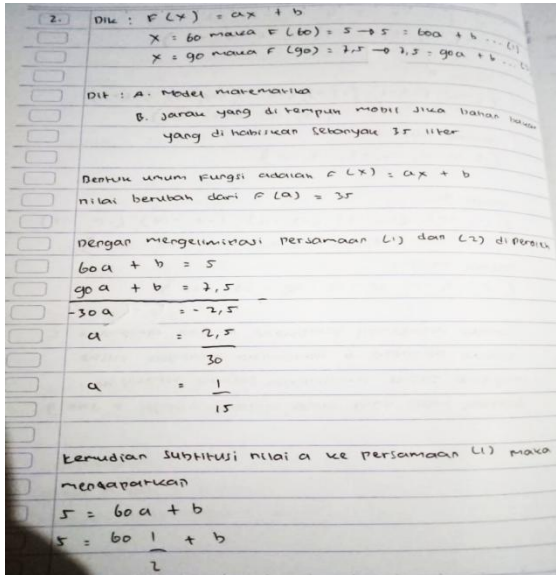 2. Dik : F(x) = ax + b
x = 60 maka F(60) = 5 → 5 = 60a + b ... (1)
x = 90 maka F(90) = 7,5 → 7,5 = 90a + b ...
Dit : A. Model matematika
B. Jarak yang di tempuh mobil jika bahan bakar
yang di habiskan sebanyak 35 liter
Bentuk umum Fungsi adalah F(x) = ax + b
nilai berubah dari F(a) = 35
Dengan mengeliminasi persamaan (1) dan (2) diperoleh
60a + b = 5
90a + b = 7,5 -
-30a = -2,5
a = 2,5
30
a = 1
15
kemudian subtitusi nilai a ke persamaan (1) maka
mendapatkan
5 = 60a + b
5 = 60 1 + b
2